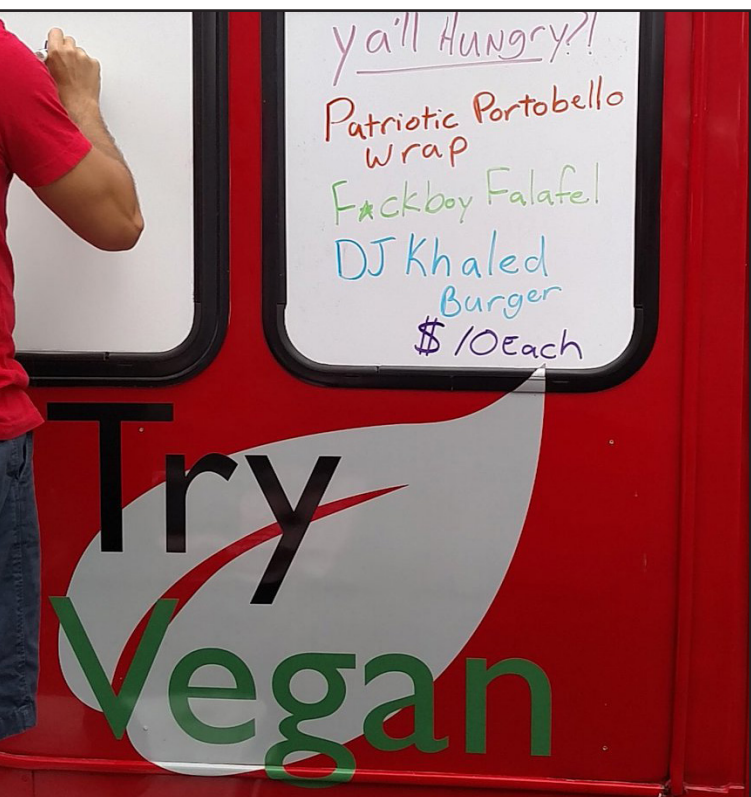 ya'll Hungry?!
Patriotic Portobello
wrap
F*ckboy Falafel
DJ Khaled
Burger
$10 Each
Try
Vegan